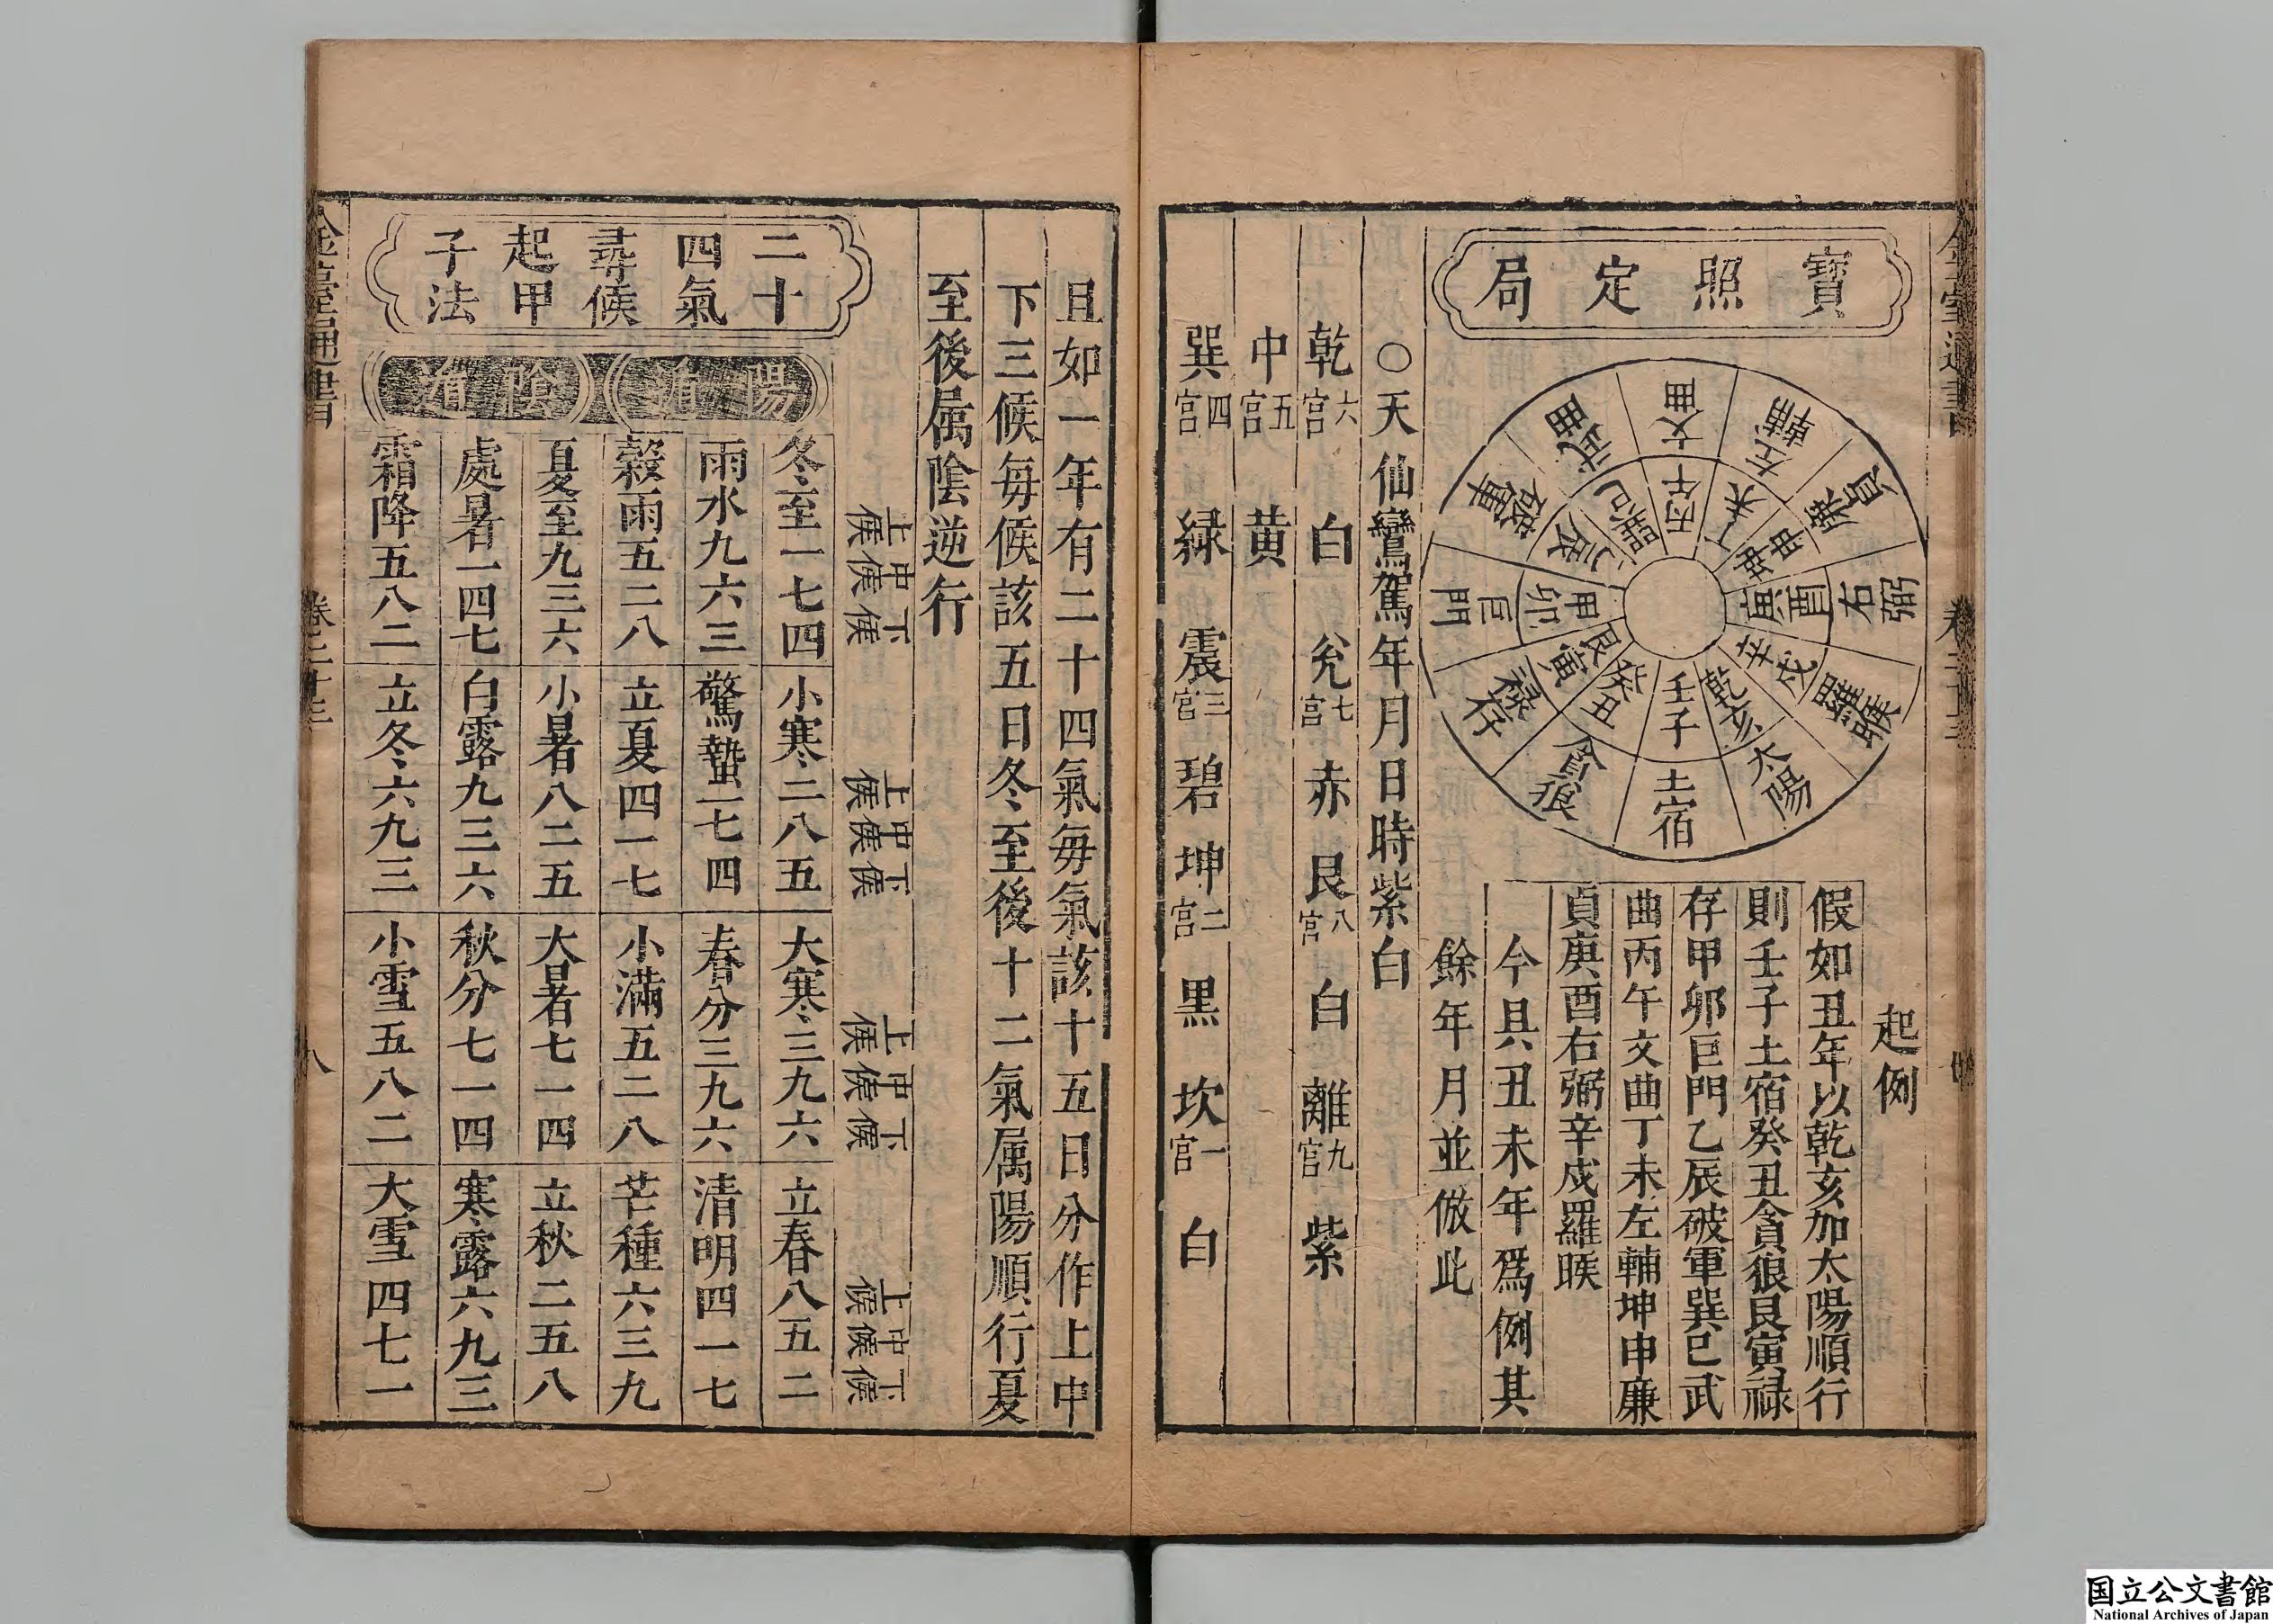 寶照定局
文曲
左輔
廉貞
右弼
羅㬋
太陽
土宿
貪狼
祿存
巨門
破軍
武曲
丙午
丁未
坤申
庚酉
辛戌
乾亥
壬子
癸丑
艮寅
甲卯
乙辰
巽巳
起例
假如丑年以乾亥加太陽順行
則壬子土宿癸丑貪狼艮寅祿
存甲卯巨門乙辰破軍巽巳武
曲丙午文曲丁未左輔坤申廉
貞庚酉右弼辛戌羅㬋
今具丑未年爲例其
餘年月並倣此
○天仙鸞駕年月日時紫白
乾六宮 白 兊七宮 赤 艮八宮 白 離九宮 紫
中五宮 黄
巽四宮 緑 震三宮 碧 坤二宮 黒 坎一宮 白
且如一年有二十四氣每氣該十五日分作上中
下三候每候該五日冬至後十二氣属陽順行夏
至後属陰逆行
二十四氣尋候起甲子法
陽遁
陰遁
上候中候下候 上候中候下候 上候中候下候 上候中候下候
冬至一七四 小寒二八五 大寒三九六 立春八五二
雨水九六三 驚蟄一七四 春分三九六 清明四一七
穀雨五二八 立夏四一七 小滿五二八 芒種六三九
夏至九三六 小暑八二五 大暑七一四 立秋二五八
處暑一四七 白露九三六 秋分七一四 寒露六九三
霜降五八二 立冬六九三 小雪五八二 大雪四七一
金臺通書 卷之十三 八
国立公文書館
National Archives of Japan